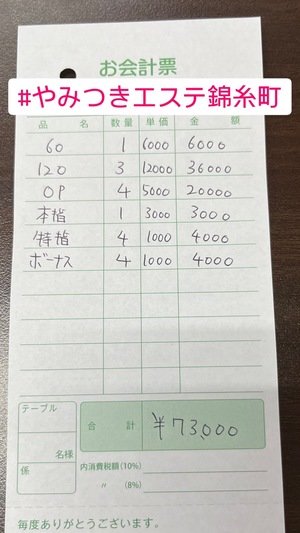 お会計票
#やみつきエステ錦糸町
品 名 数量 単価 金 額
60 1 6000 6000
120 3 12000 36000
OP 4 5000 20000
本指 1 3000 3000
特指 4 1000 4000
ボーナス 4 1000 4000
テーブル
名様
係
合 計 ¥73,000
内消費税額(10%)
〃 (8%)
毎度ありがとうございます。